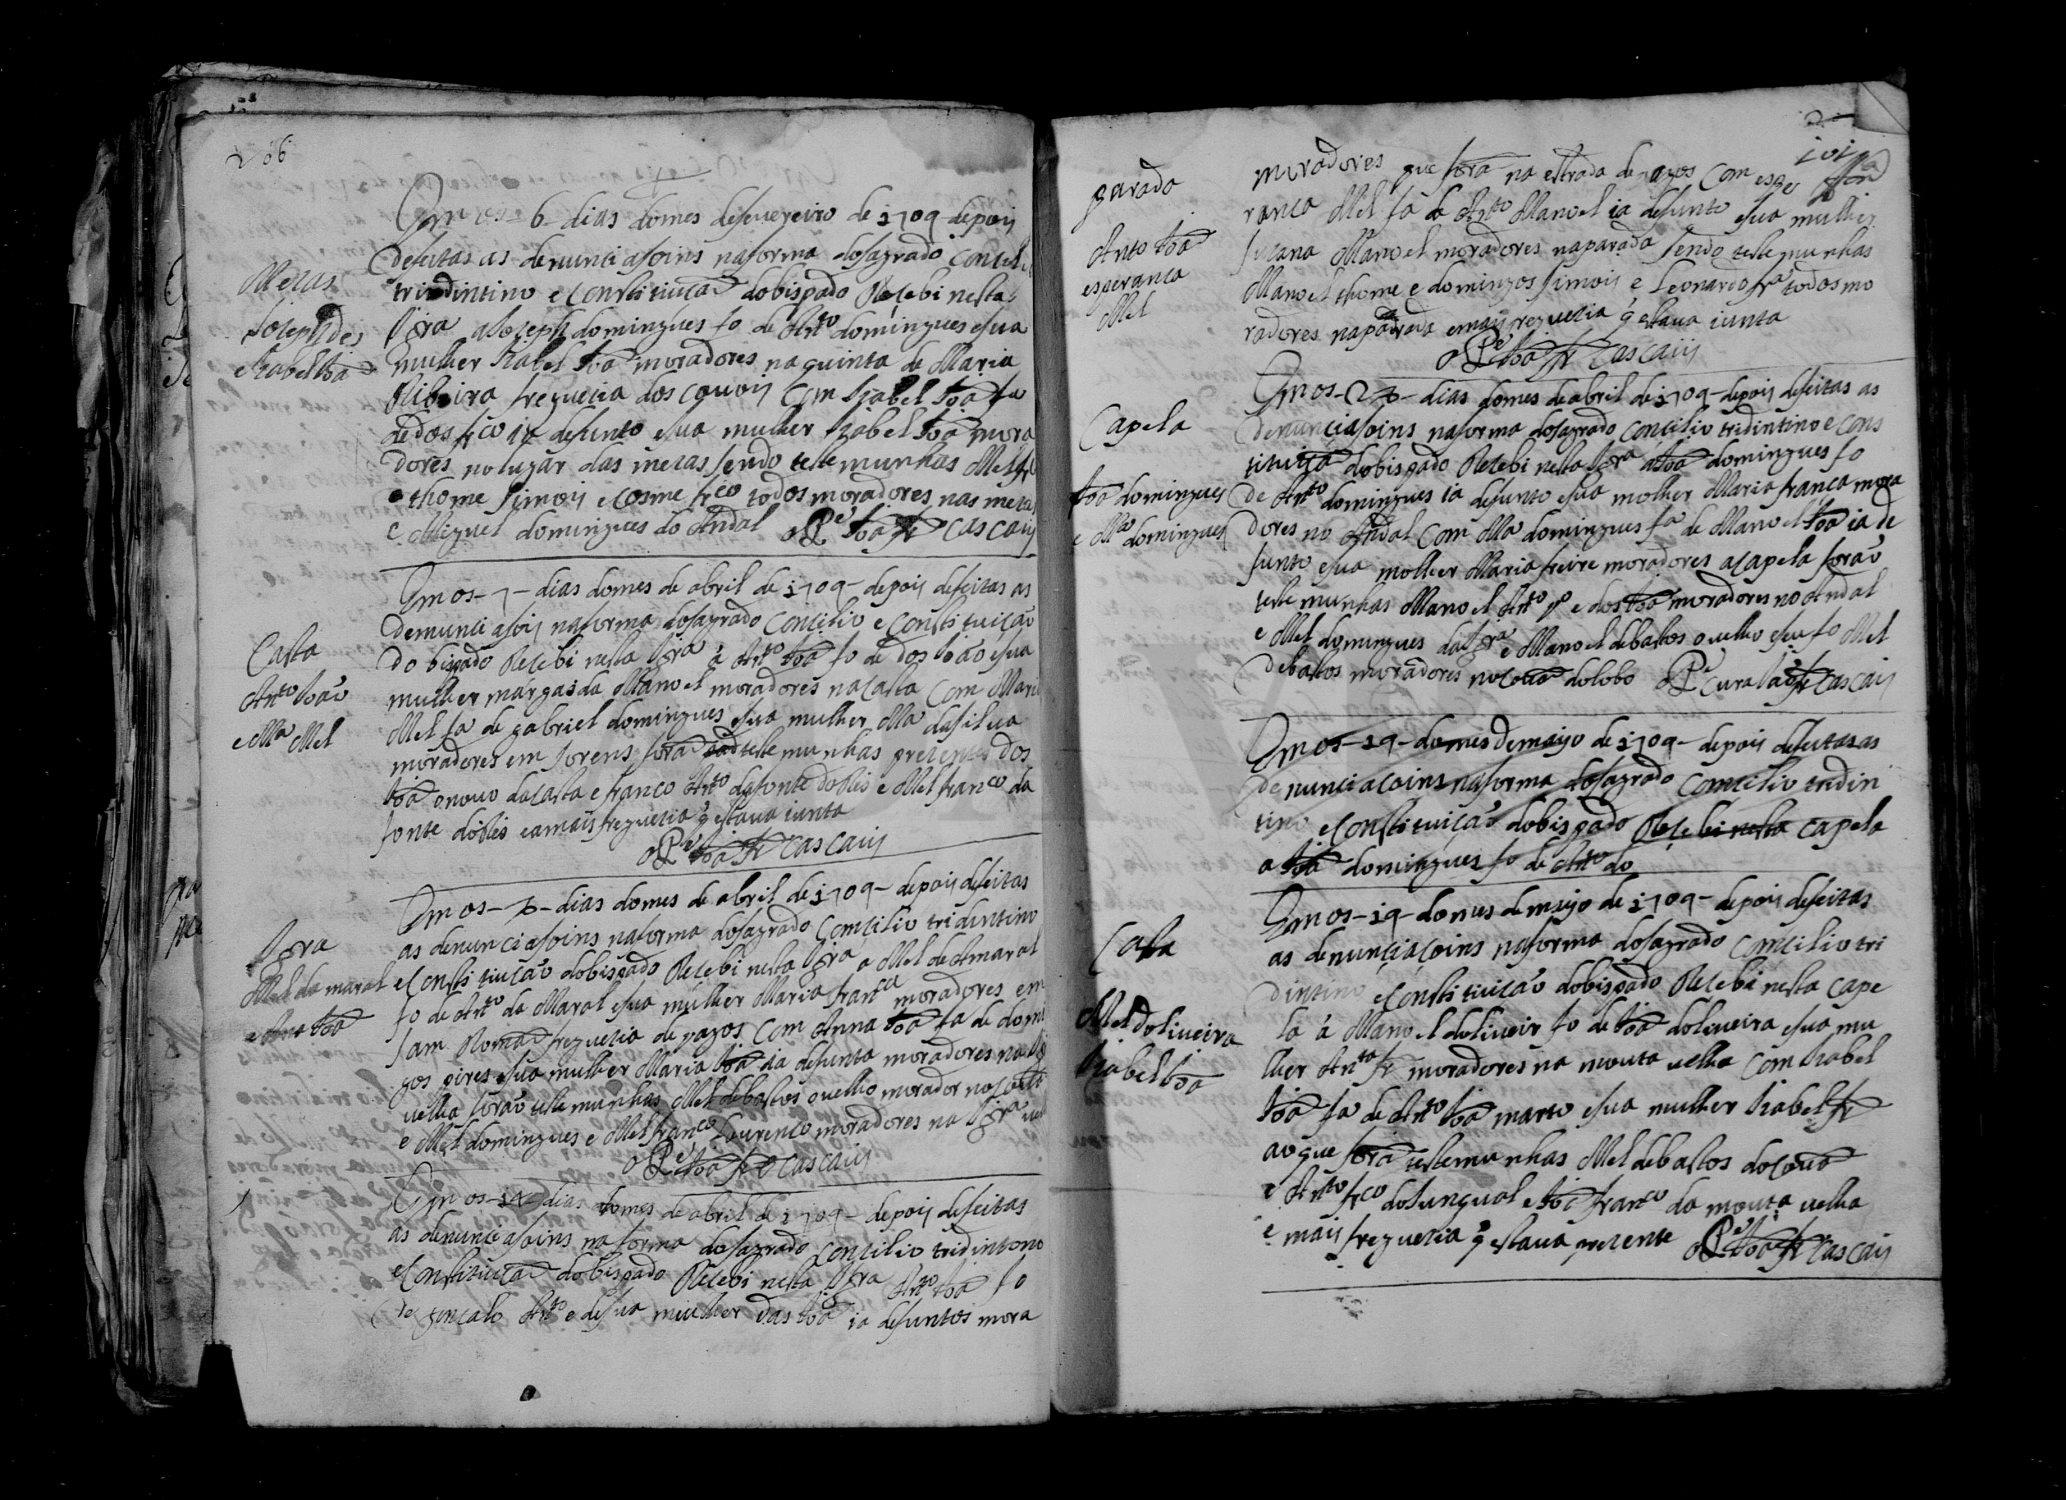 206
Em os - 6 - dias do mes de fevereiro de 1709 - depois
defeitas as denunciasoins na forma do sagrado Concili
tridintino e Constituicã do bispado Recebi nesta
Igra a Joseph domingues fo de Anto domingues e sua
mulher Izabel Joã moradores na quinta de Maria
Ribeira freguezia dos covois Com Izabel Joã fa
de dos frco ia defunto e sua mulher Izabel Joã mora
dores no lugar das mezas sendo testemunhas Mel fr
e thome simois e Cosme frco todos moradores nas mezas
e Miguel domingues do Andal o Pe Joã fr Cascais
Mezas
Joseph des
e Izabel Joã
Em os - 7 - dias do mes de abril de 1709 - depois defeitas as
denunciasois na forma do sagrado Concilio e Constituicaõ
do bispado Recebi nesta Igra a Anto Joã fo de dos Joaõ e sua
mulher margaida Manoel moradores na Casta Com Maria
Mel fa de gabriel domingues e sua mulher Ma da silva
moradores em sorens forã testemunhas prezentes dos
Joã o novo da Casta e franco Anto da fonte dobles e Mel franco da
fonte dobles e a mais freguezia q estava iunta
o Pe Joã fr Cascais
Casta
Anto Joaõ
e Ma Mel
Em os - dias do mes de abril de 1709 - depois defeitas
as denunciasoins na forma do sagrado Concilio tridintino
e Constituicaõ do bispado Recebi nesta Igra a Mel do Amaral
fo de Anto do Maral e sua mulher Maria franca moradores em
sam Romã freguezia de vagos Com Anna Joã fa de domi
gos pires e sua mulher Maria Joã ia defunta moradores na Igr
velha foraõ testemunhas Mel debastos o velho morador no
e Mel domingues e Mel franco Lourenco moradores na Igra vel
o Pe Joã fr Cascais
Igra
Mel do maral
e Ana Joã
Em os - dias do mes de abril de 1709 - depois defeitas
as denunciasoins na forma do sagrado Concilio tridintono
e Constituicã do bispado Recebi nesta Igra Anto Joã fo
de goncalo Anto e de sua mulher Joã ia defuntos mora
101
moradores que forã na estrada de vagos Com espe
ranca Mel fa de Anto Manoel ia defunto e sua mulher
suzana Manoel moradores na parada sendo testemunhas
Manoel thome e domingos simois e Leonardo fra todos mo
radores na parada e mais freguezia q estava iunta
o Pe Joã fr Cascais
parada
Anto Joã
esperanca
Mel
Em os - 23 - dias do mes de abril de 1709 - depois defeitas as
denunciasoins na forma do sagrado Concilio tridintino e Cons
tituicã do bispado Recebi nesta Igra a Joã domingues fo
de Anto domingues ia defunto e sua molher Maria franca mora
dores no Andal Com Ma domingues fa de Manoel Joã ia de
funto e sua molher Maria freire moradores a Capela foraõ
testemunhas Manoel Anto e dos Joã moradores no Andal
e Mel domingues da Igra e Manoel debastos o velho e seu fo Mel
debastos moradores no Covã do lobo o Pe cura Joã fr Cascais
Capela
Joã domingues
e Ma domingues
Em os - 19 - do mes de maiyo de 1709 - depois defeitas as
denunciacoins na forma do sagrado Concilio tridin
tino e Constituicaõ do bispado Recebi nesta Capela
a Joã domingues fo de Anto do
Em os - 19 - do mes de maiyo de 1709 - depois defeitas
as denunciacoins na forma do sagrado Concilio tri
dintino e Constituicaõ do bispado Recebi nesta Cape
la a Manoel doliveir fo de Joã doliveira e sua mu
lher Anta fr moradores na mouta velha Com Izabel
Joã fa de Anto Joã marto e sua mulher Izabel fr
ao que forã testemunhas Mel debastos do Covã
e Anto frco do Junqual e Joã franco da mouta velha
e mais freguezia q estava prezente o Pe Joã fr Cascais
Casta
Mel doliveira
Izabel Joã